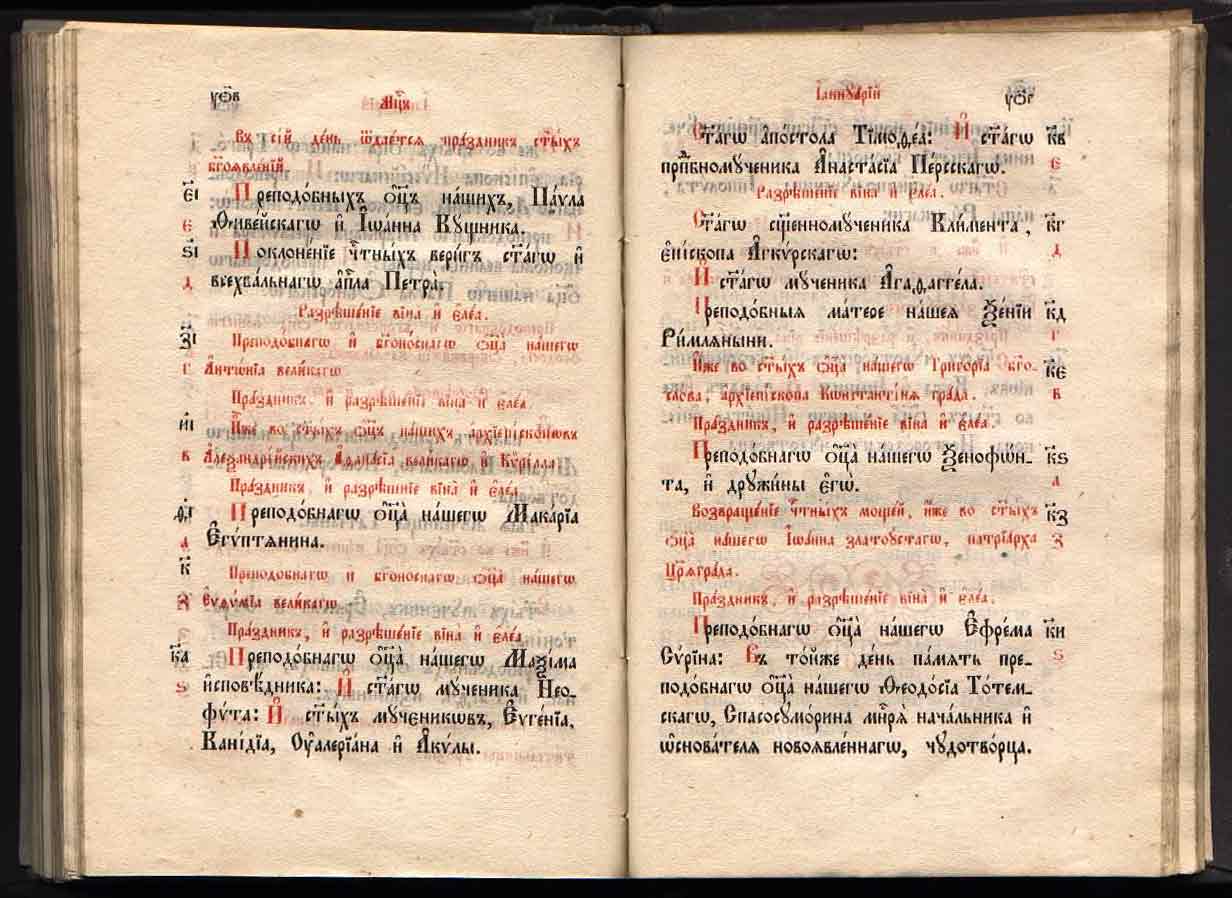 уо҃в
Мцⷭ҇ъ
Въ сі́й де́нь ѿдае́тся пра́здникъ ст҃ы́хъ
бг҃оявле́ній.
є҃і Преподо́бныхъ ѻ҆ц҃ъ на́шихъ, Па́ѵла
є Ѳиве́йскагѡ и҆ І҆ѡа́нна Кꙋ́щника.
ѕ҃і Поклоне́ніе чⷭ҇тны́хъ вери́гъ ст҃а́гѡ и҆
д всехва́льнагѡ а҆пⷭ҇ла Петра̀.
Разрѣше́ніе віна̀ и҆ є҆ле́а.
з҃і Преподо́бнагѡ и҆ бг҃оно́снагѡ ѻ҆ц҃а̀ на́шегѡ
г А҆нтѡ́нїа вели́кагѡ
Пра́здникъ, и҆ разрѣше́ніе віна̀ и҆ є҆ле́а.
и҃і И҆̀же во ст҃ы́хъ ѻ҆ц҃ъ на́шихъ а҆рхїепі́скопѡвъ
в А҆леѯандрі́йскихъ А҆ѳана́сїа вели́кагѡ и҆ Кѷрі́лла.
Пра́здникъ, и҆ разрѣше́ніе віна̀ и҆ є҆ле́а
ѳ҃і Преподо́бнагѡ ѻ҆ц҃а̀ на́шегѡ Мака́рїа
а Є҆гѵ́птѧнина.
к҃ Преподо́бнагѡ и҆ бг҃оно́снагѡ ѻ҆ц҃а̀ на́шегѡ
з Єѵѳѵ́мїа вели́кагѡ
Пра́здникъ, и҆ разрѣше́ніе віна̀ и҆ є҆ле́а
к҃а Преподо́бнагѡ ѻ҆ц҃а̀ на́шегѡ Маѯі́ма
ѕ и҆сповѣ́дника: И҆ ст҃а́гѡ мꙋ́ченика Нео-
фѵ́та: И҆ ст҃ы́хъ мꙋ́ченикѡвъ, Є҆ѵге́нїа,
Кані́дїа, Оу҆алерїа́на и҆ А҆кѵ́лы.
І҆аннꙋа́рїй
уо҃г
Ст҃а́гѡ а҆по́стола Тїмоѳе́а: И҆ ст҃а́гѡ к҃в
прпⷣбномꙋ́ченика А҆наста́сїа Пе́рсскагѡ. є
Разрѣше́ніе віна̀ и҆ є҆ле́а.
Ст҃а́гѡ сщ҃енномꙋ́ченика Кли́мента, к҃г
є҆пі́скопа А҆гкѵ́рскагѡ: д
И҆ ст҃а́гѡ мꙋ́ченика А҆гаѳа́ггела.
Преподо́бныѧ ма́тере на́шеѧ Ѯе́нїи к҃д
Ри́млѧныни. г
И҆̀же во ст҃ы́хъ ѻ҆ц҃а̀ на́шегѡ Григо́рїа бг҃о- к҃є
сло́ва, а҆рхїепі́скопа Кѡнстанті́нѧ гра́да. в
Пра́здникъ, и҆ разрѣше́ніе віна̀ и҆ є҆ле́а.
Преподо́бнагѡ ѻ҆ц҃а̀ на́шегѡ Ѯенофѡ́н- к҃ѕ
та, и҆ дрꙋжи́ны є҆гѡ̀. а
Возвраще́ніе чⷭ҇тны́хъ моще́й, и҆̀же во ст҃ы́хъ к҃з
ѻ҆ц҃а̀ на́шегѡ І҆ѡа́нна златоꙋ́стагѡ, патрїа́рха з
Цр҃ѧгра́да.
Пра́здникъ, и҆ разрѣше́ніе віна̀ и҆ є҆ле́а.
Преподо́бнагѡ ѻ҆ц҃а̀ на́шегѡ Є҆фре́ма к҃и
Сѵ́рїна: Въ то́йже де́нь па́мять пре- ѕ
подо́бнагѡ ѻ҆ц҃а̀ на́шегѡ Ѳеодо́сїа То́тем-
скагѡ, Спасосꙋмо́рина мн҃рѧ̀ нача́льника и҆
ѡ҆снова́телѧ новоѧвле́ннагѡ, чꙋдотво́рца.